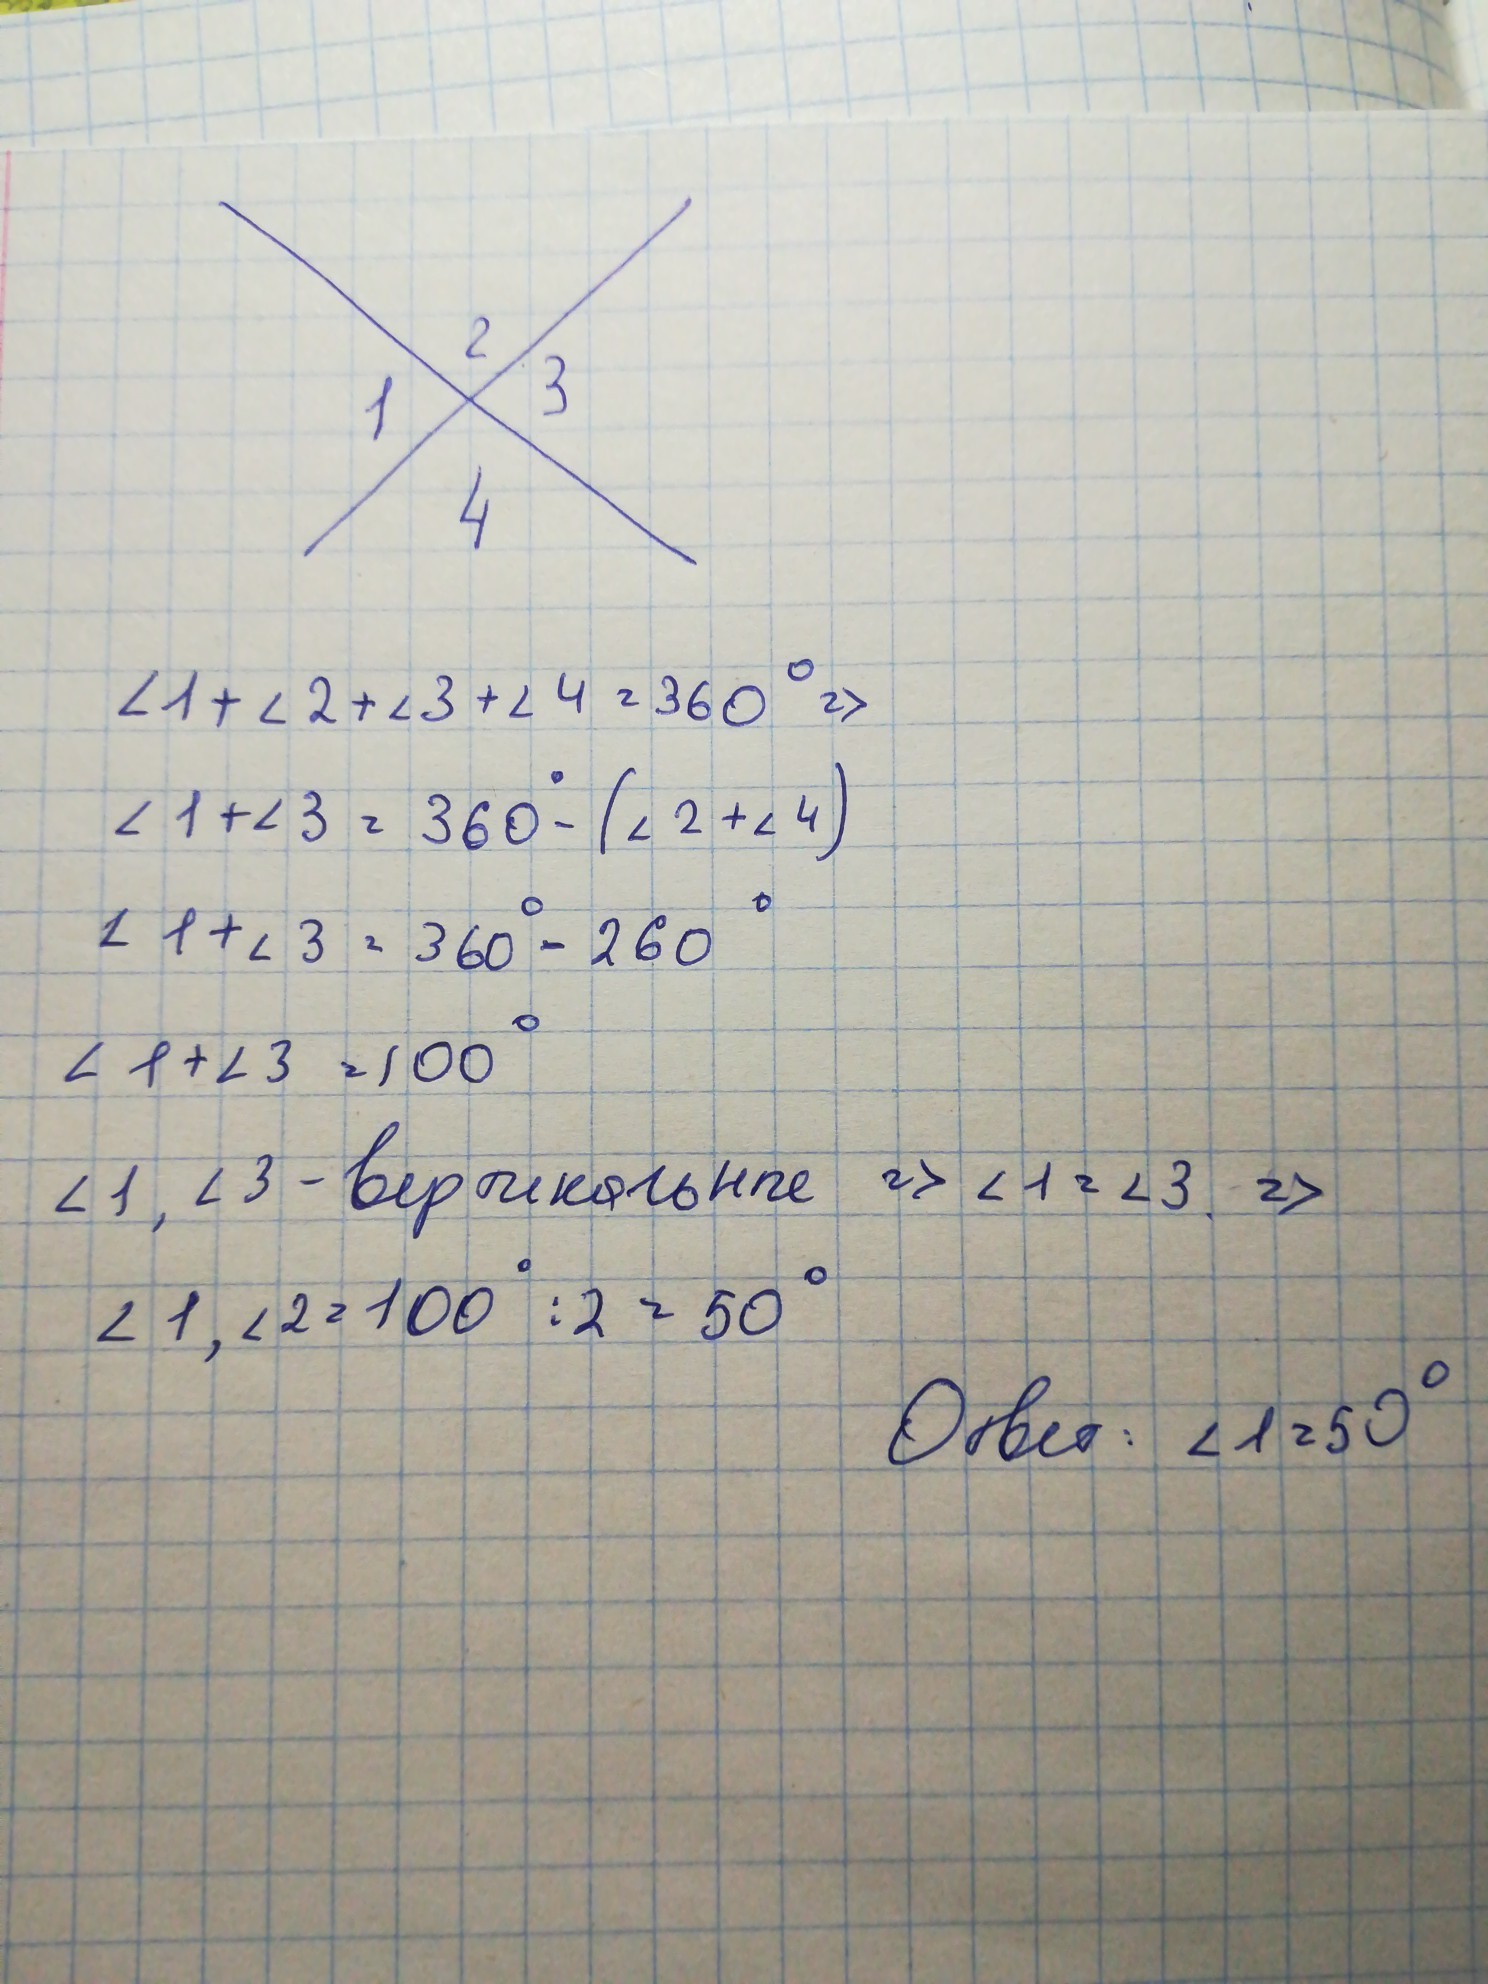 2
1
3
4
∠1+∠2+∠3+∠4=360° =>
∠1+∠3 = 360°-(∠2+∠4)
∠1+∠3 = 360°-260°
∠1+∠3 =100°
∠1, ∠3 - вертикальные => ∠1=∠3. =>
∠1, ∠2=100° :2 = 50°
Ответ: ∠1=50°